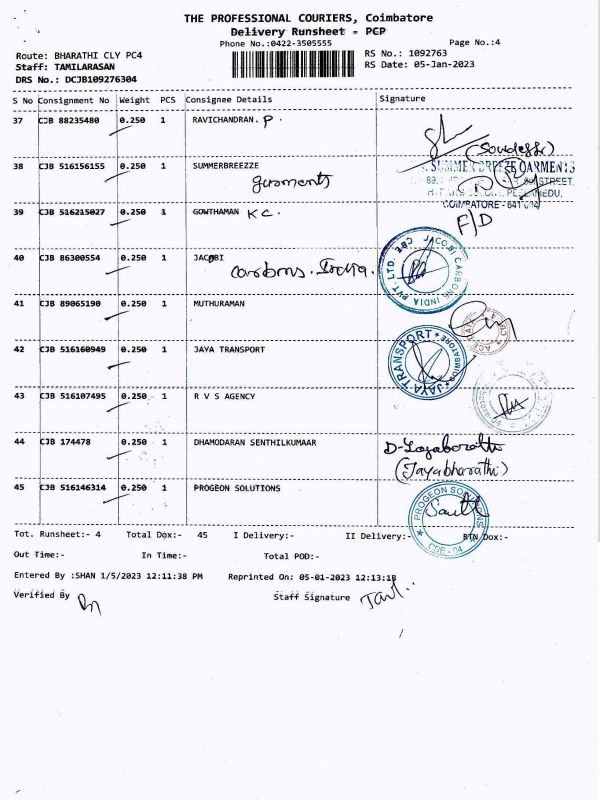 THE PROFESSIONAL COURIERS, Coimbatore
Delivery Runsheet - PCP
Phone No.:0422-3505555
Page No.:4
Route: BHARATHI CLY PC4
RS No.: 1092763
Staff: TAMILARASAN
RS Date: 05-Jan-2023
DRS No.: DCJB109276304
S No Consignment No Weight PCS Consignee Details Signature
37 CJB 88235480 0.250 1 RAVICHANDRAN. P.
38 CJB 516156155 0.250 1 SUMMERBREEZZE
garments
SUMMER BREEZE GARMENTS
STREET,
COIMBATORE - 641 004
39 CJB 516215027 0.250 1 GOWTHAMAN K C.
F/D
40 CJB 86300554 0.250 1 JACOBI
Carbons. India.
JACOBI CARBONS INDIA PVT. LTD. CBE
41 CJB 89065190 0.250 1 MUTHURAMAN
42 CJB 516160949 0.250 1 JAYA TRANSPORT
JAYA TRANSPORT
COIMBATORE
43 CJB 516107495 0.250 1 R V S AGENCY
44 CJB 174478 0.250 1 DHAMODARAN SENTHILKUMAAR
(Jayabharathi)
45 CJB 516146314 0.250 1 PROGEON SOLUTIONS
PROGEON SOLUTIONS
CBE - 04
Tot. Runsheet:- 4 Total Dox:- 45 I Delivery:- II Delivery:- RTN Dox:-
Out Time:- In Time:- Total POD:-
Entered By :SHAN 1/5/2023 12:11:38 PM Reprinted On: 05-01-2023 12:13:18
Verified By
Staff Signature